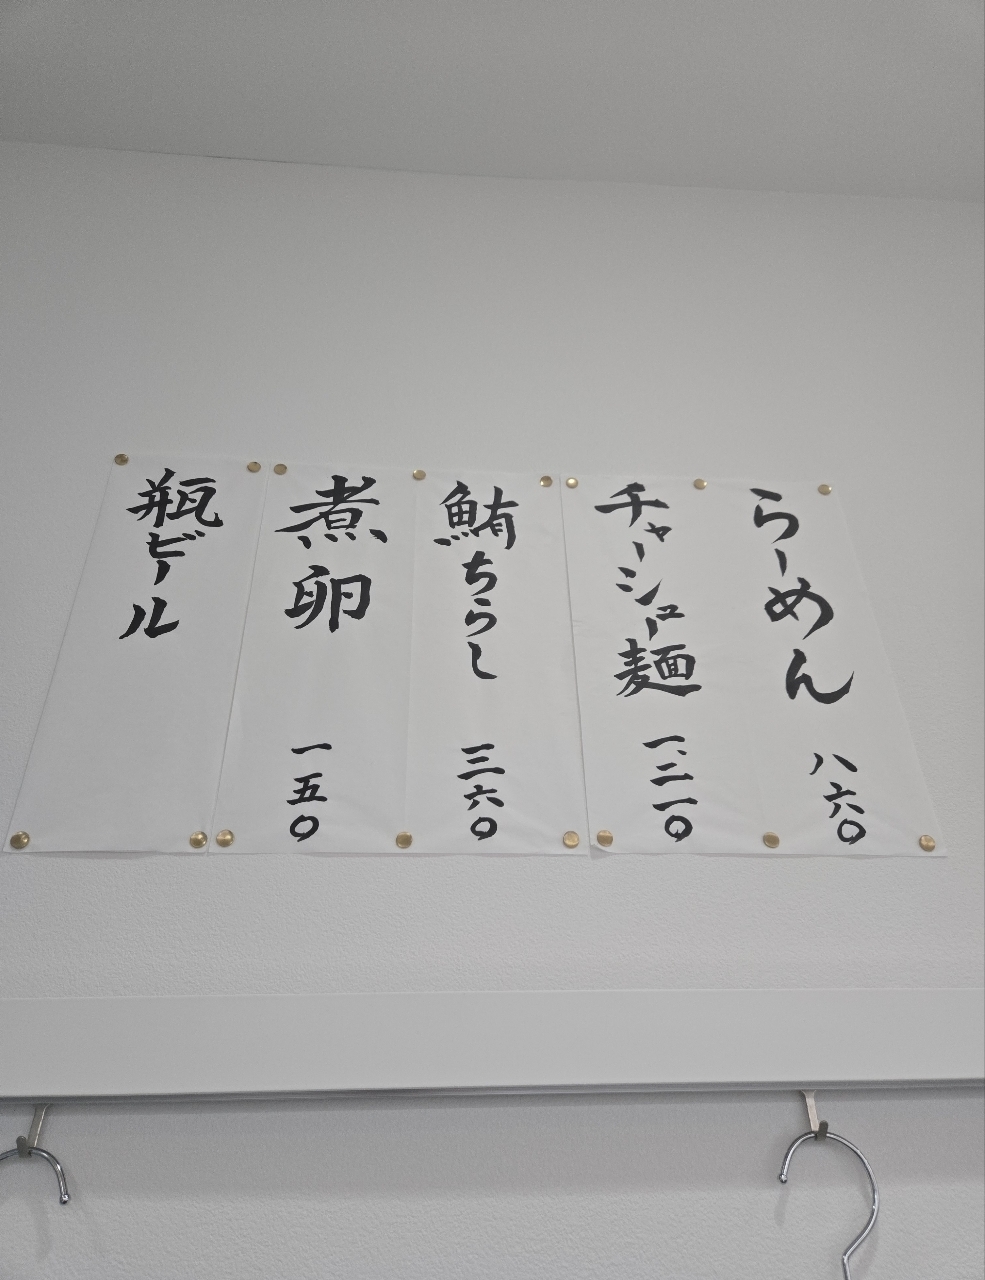 らーめん 八六〇
チャーシュー麺 一、二一〇
鮪ちらし 三六〇
煮卵 一五〇
瓶ビール